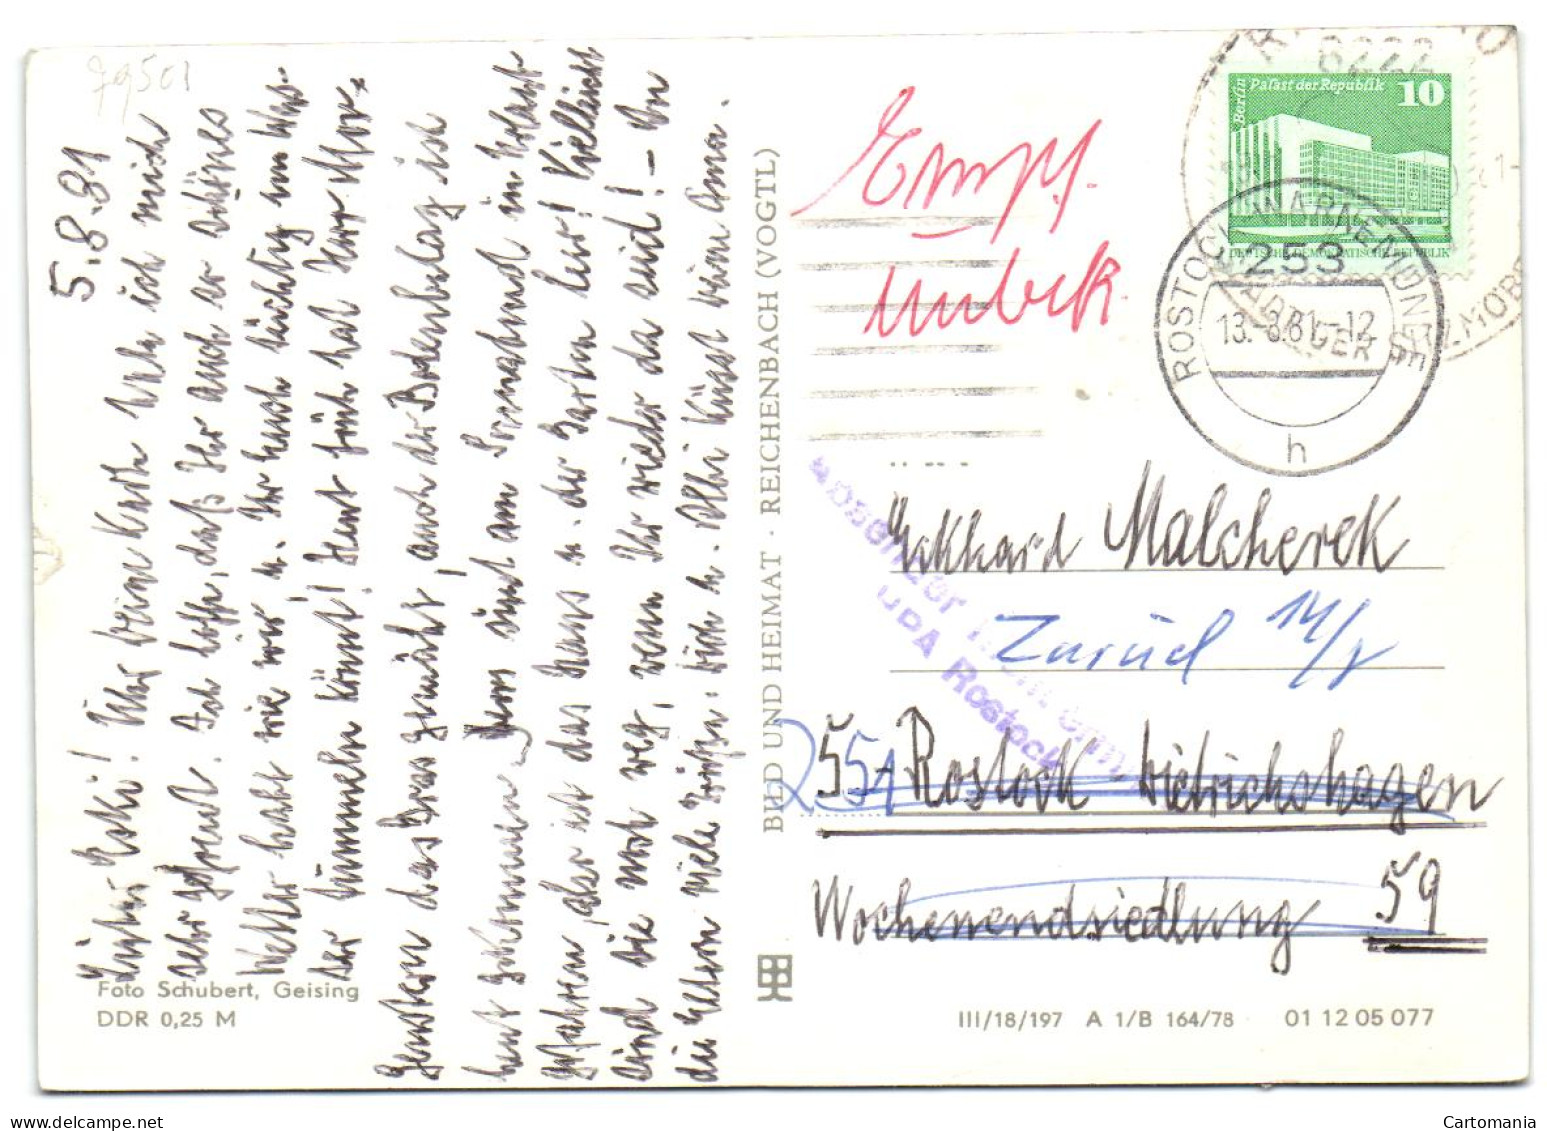 79501
5.8.81
Lieber Ecki! Über deine Karte habe ich mich
sehr gefreut. Ich hoffe, daß Ihr auch so schönes
Wetter habt wie wir u. Ihr Euch tüchtig im Was-
ser tummeln könnt! Heut früh hat Herr
Gerstern das Gras gemäht, auch der Bodenbelag ist
heut gekommen. sind am Sonnabend in Urlaub
gefahren, aber ist das Haus u. der Garten leer! Vielleicht
sind sie noch weg, wenn Ihr wieder da seid! – An
die Eltern viele Grüße. Dich u. küsst deine Oma.
Foto Schubert, Geising
DDR 0,25 M
BILD UND HEIMAT · REICHENBACH (VOGTL)
III/18/197 A 1/B 164/78 01 12 05 077
Berlin Palast der Republik 10
DEUTSCHE DEMOKRATISCHE REPUBLIK
8222
ROSTOCK-WARNEMÜNDE
253
13.-8.81.-12
h
Empf.
unbek.
Absender
UPA Rostock
Eckhard Malcherek
Zurück 14/8
2551
55 Rostock Dietrichshagen
Wochenendsiedlung 59
Cartomania